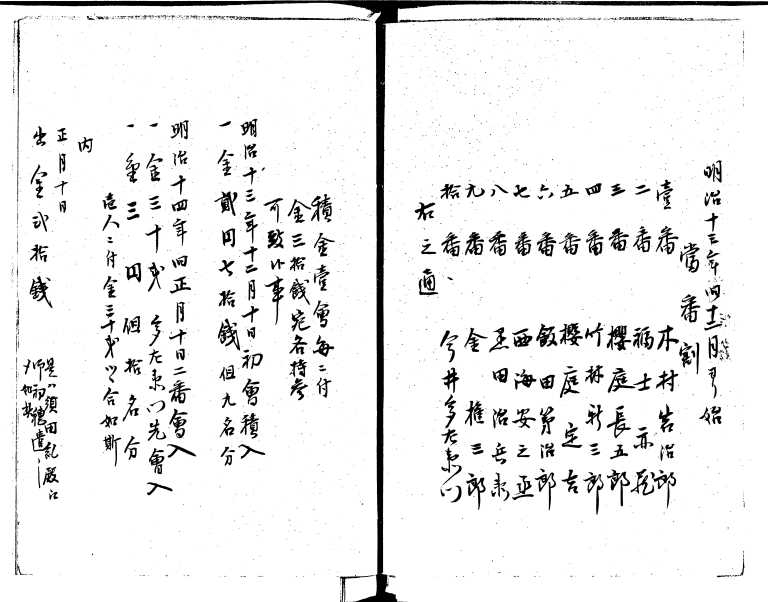 明治十三年回十二月ヨリ始
當番割
壹番 木村岩治郎
二番 福士亦
三番 櫻庭長五郎
四番 竹林新三郎
五番 櫻庭定吉
六番 飯田第治郎
七番 西海安之丞
八番 黒田治兵衛
九番 金 権三郎
拾番 今井多左衛門
右之通
積金壹會毎ニ付
金三拾錢宛各持参
可致候事
明治十三年十二月十日初會積入
一金貳円七拾錢 但九名分
明治十四年回正月十日二番會入
一金三十戔 多左衛門先會入
一金三円 但拾名分
壱人ニ付金三十戔ツヽ合如斯
内
正月十日
出金弐拾錢
是ハ須田
師初穂遣